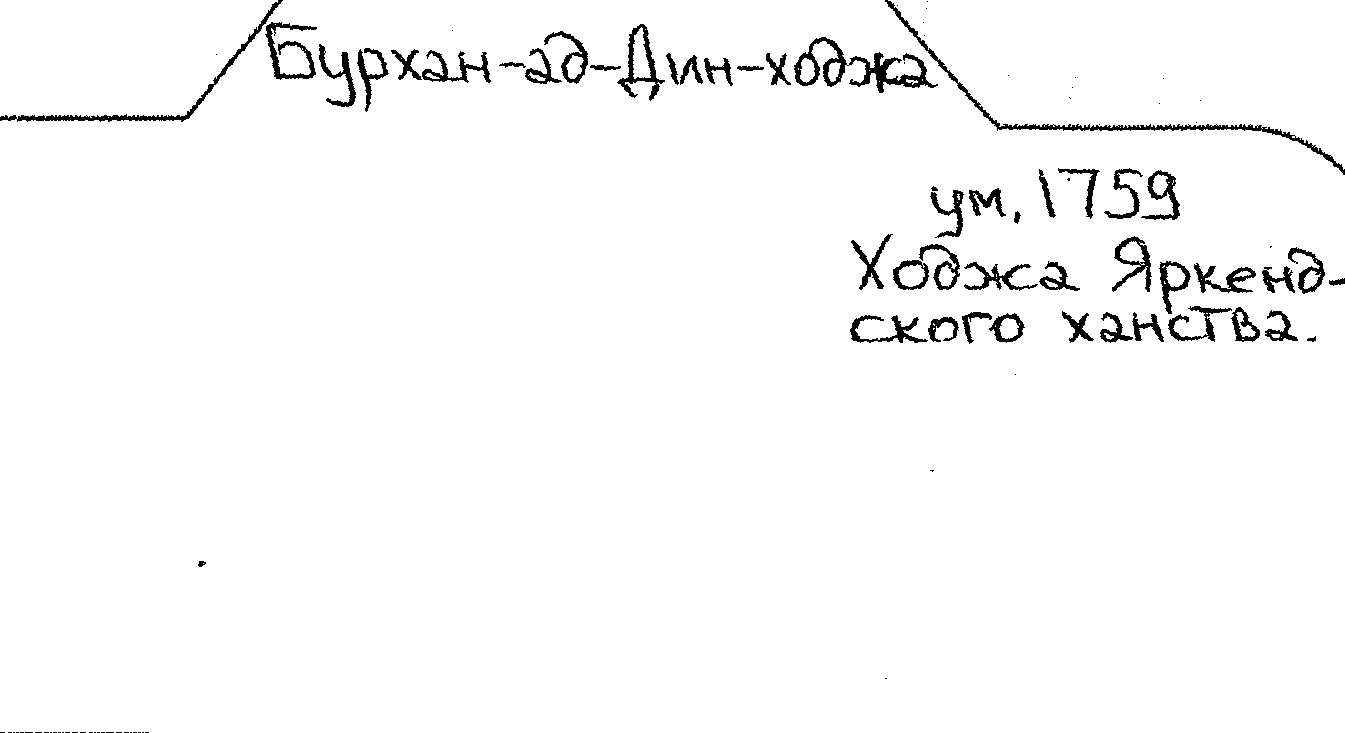 Бурхан-ад-Дин-ходжа
ум. 1759
Ходжа Яркенд-
ского ханства.